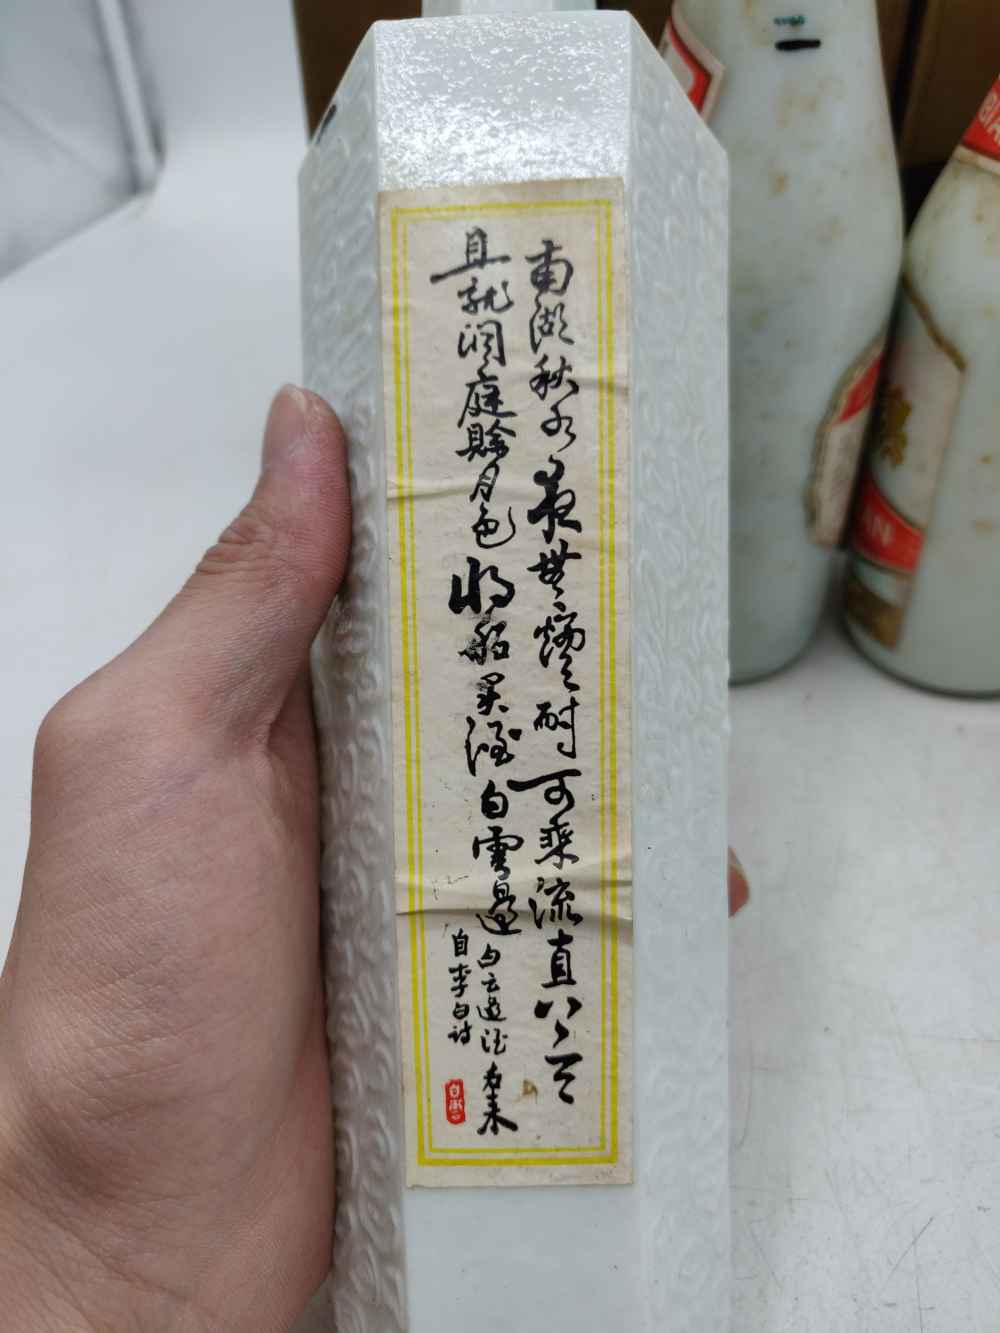 南湖秋水夜無煙耐可乘流直上天
且就洞庭賒月色将船买酒白雲邊
白云边酒名来
自李白诗